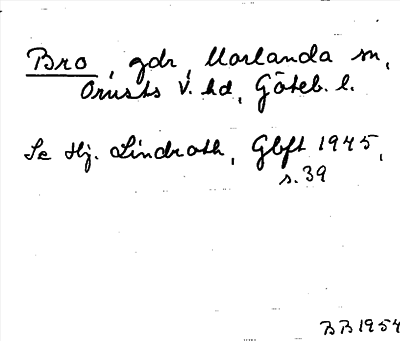 Bro, gdr, Morlanda sn,
Orusts V. hd, Göteb. l.
Se Hj. Lindroth, Gbft 1945,
s. 39
BB 1954